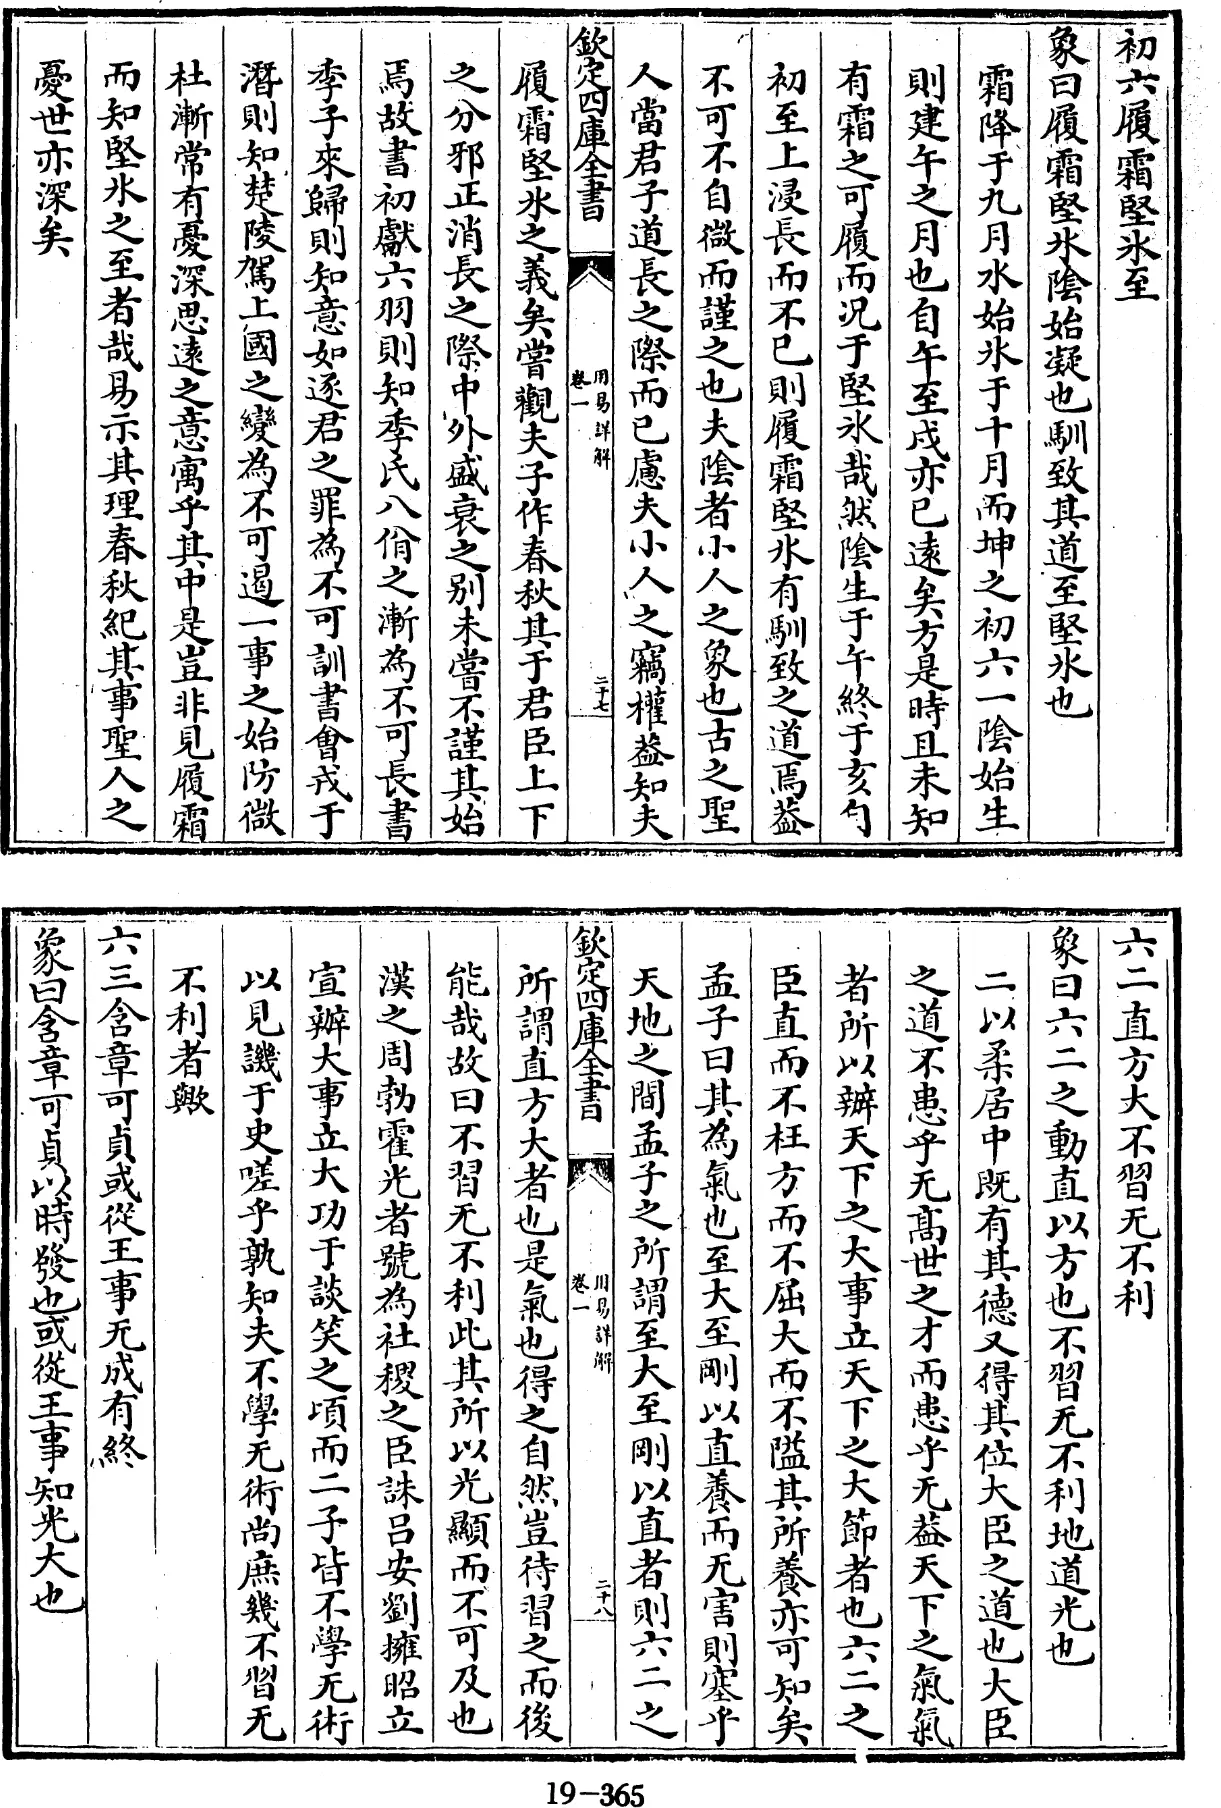 初六履霜堅氷至
象曰履霜堅氷陰始凝也馴致其道至堅氷也
霜降于九月水始氷于十月而坤之初六一陰始生
則建午之月也自午至戌亦已遠矣方是時且未知
有霜之可履而況于堅氷哉然陰生于午終于亥勻
初至上浸長而不已則履霜堅氷有馴致之道焉葢
不可不自微而謹之也夫陰者小人之象也古之聖
人當君子道長之際而已慮夫小人之竊權葢知夫
欽定四庫全書
用易詳解
卷一
二十七
履霜堅氷之義矣嘗觀夫子作春秋其于君臣上下
之分邪正消長之際中外盛衰之别未嘗不謹其始
焉故書初獻六羽則知季氏八佾之漸為不可長書
季子來歸則知意如逐君之罪為不可訓書會戎于
潛則知楚陵駕上國之變為不可遏一事之始防微
杜漸常有憂深思逺之意寓乎其中是豈非見履霜
而知堅氷之至者哉易示其理春秋紀其事聖人之
憂世亦深矣
六二直方大不習无不利
象曰六二之動直以方也不習无不利地道光也
二以柔居中既有其德又得其位大臣之道也大臣
之道不患乎无髙世之才而患乎无葢天下之氣氣
者所以辦天下之大事立天下之大節者也六二之
臣直而不枉方而不屈大而不隘其所養亦可知矣
孟子曰其為氣也至大至剛以直養而无害則塞乎
天地之間孟子之所謂至大至剛以直者則六二之
欽定四庫全書
用易詳解
卷一
二十八
所謂直方大者也是氣也得之自然豈待習之而後
能哉故曰不習无不利此其所以光顯而不可及也
漢之周勃霍光者號為社稷之臣誅吕安劉擁昭立
宣辦大事立大功于談笑之頃而二子皆不學无術
以見譏于史嗟乎孰知夫不學无術尚庶幾不習无
不利者歟
六三含章可貞或從王事无成有終
象曰含章可貞以時發也或從王事知光大也
19-365